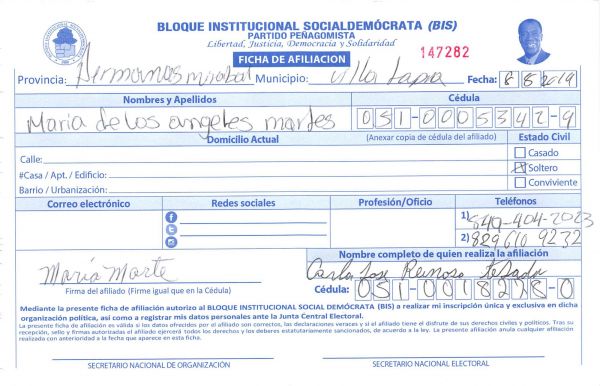 BLOQUE INSTITUCIONAL SOCIALDEMÓCRATA (BIS)
PARTIDO PEÑAGOMISTA
Libertad, Justicia, Democracia y Solidaridad
FICHA DE AFILIACION
147282
Provincia: Hermanas mirabal Municipio: Villa Tapia Fecha: 8 8 2019
Nombres y Apellidos Cédula
Maria de los angeles martes 051-0005342-9
Domicilio Actual (Anexar copia de cédula del afiliado) Estado Civil
Calle: Casado
#Casa / Apt. / Edificio: Soltero
Barrio / Urbanización: Conviviente
Correo electrónico Redes sociales Profesión/Oficio Teléfonos
1) 849-404-2023
2) 829 610 9232
Nombre completo de quien realiza la afiliación
María Marte Carlos Jose Reinoso Tejada
Firma del afiliado (Firme igual que en la Cédula) Cédula: 051-0018228-0
Mediante la presente ficha de afiliación autorizo al BLOQUE INSTITUCIONAL SOCIAL DEMÓCRATA (BIS) a realizar mi inscripción única y exclusiva en dicha
organización política, así como a registrar mis datos personales ante la Junta Central Electoral.
La presente ficha de afiliación es válida si los datos ofrecidos por el afiliado son correctos, las declaraciones veraces y si el afiliado tiene el disfrute de sus derechos civiles y políticos. Tras su
recepción, sello y firmas autorizadas el afiliado ejercerá todos los derechos y los deberes estatutariamente sancionados, de acuerdo a la ley. La presente afiliación anula cualquier afiliación
realizada con anterioridad a la fecha que aparece en esta ficha.
SECRETARIO NACIONAL DE ORGANIZACIÓN SECRETARIO NACIONAL ELECTORAL